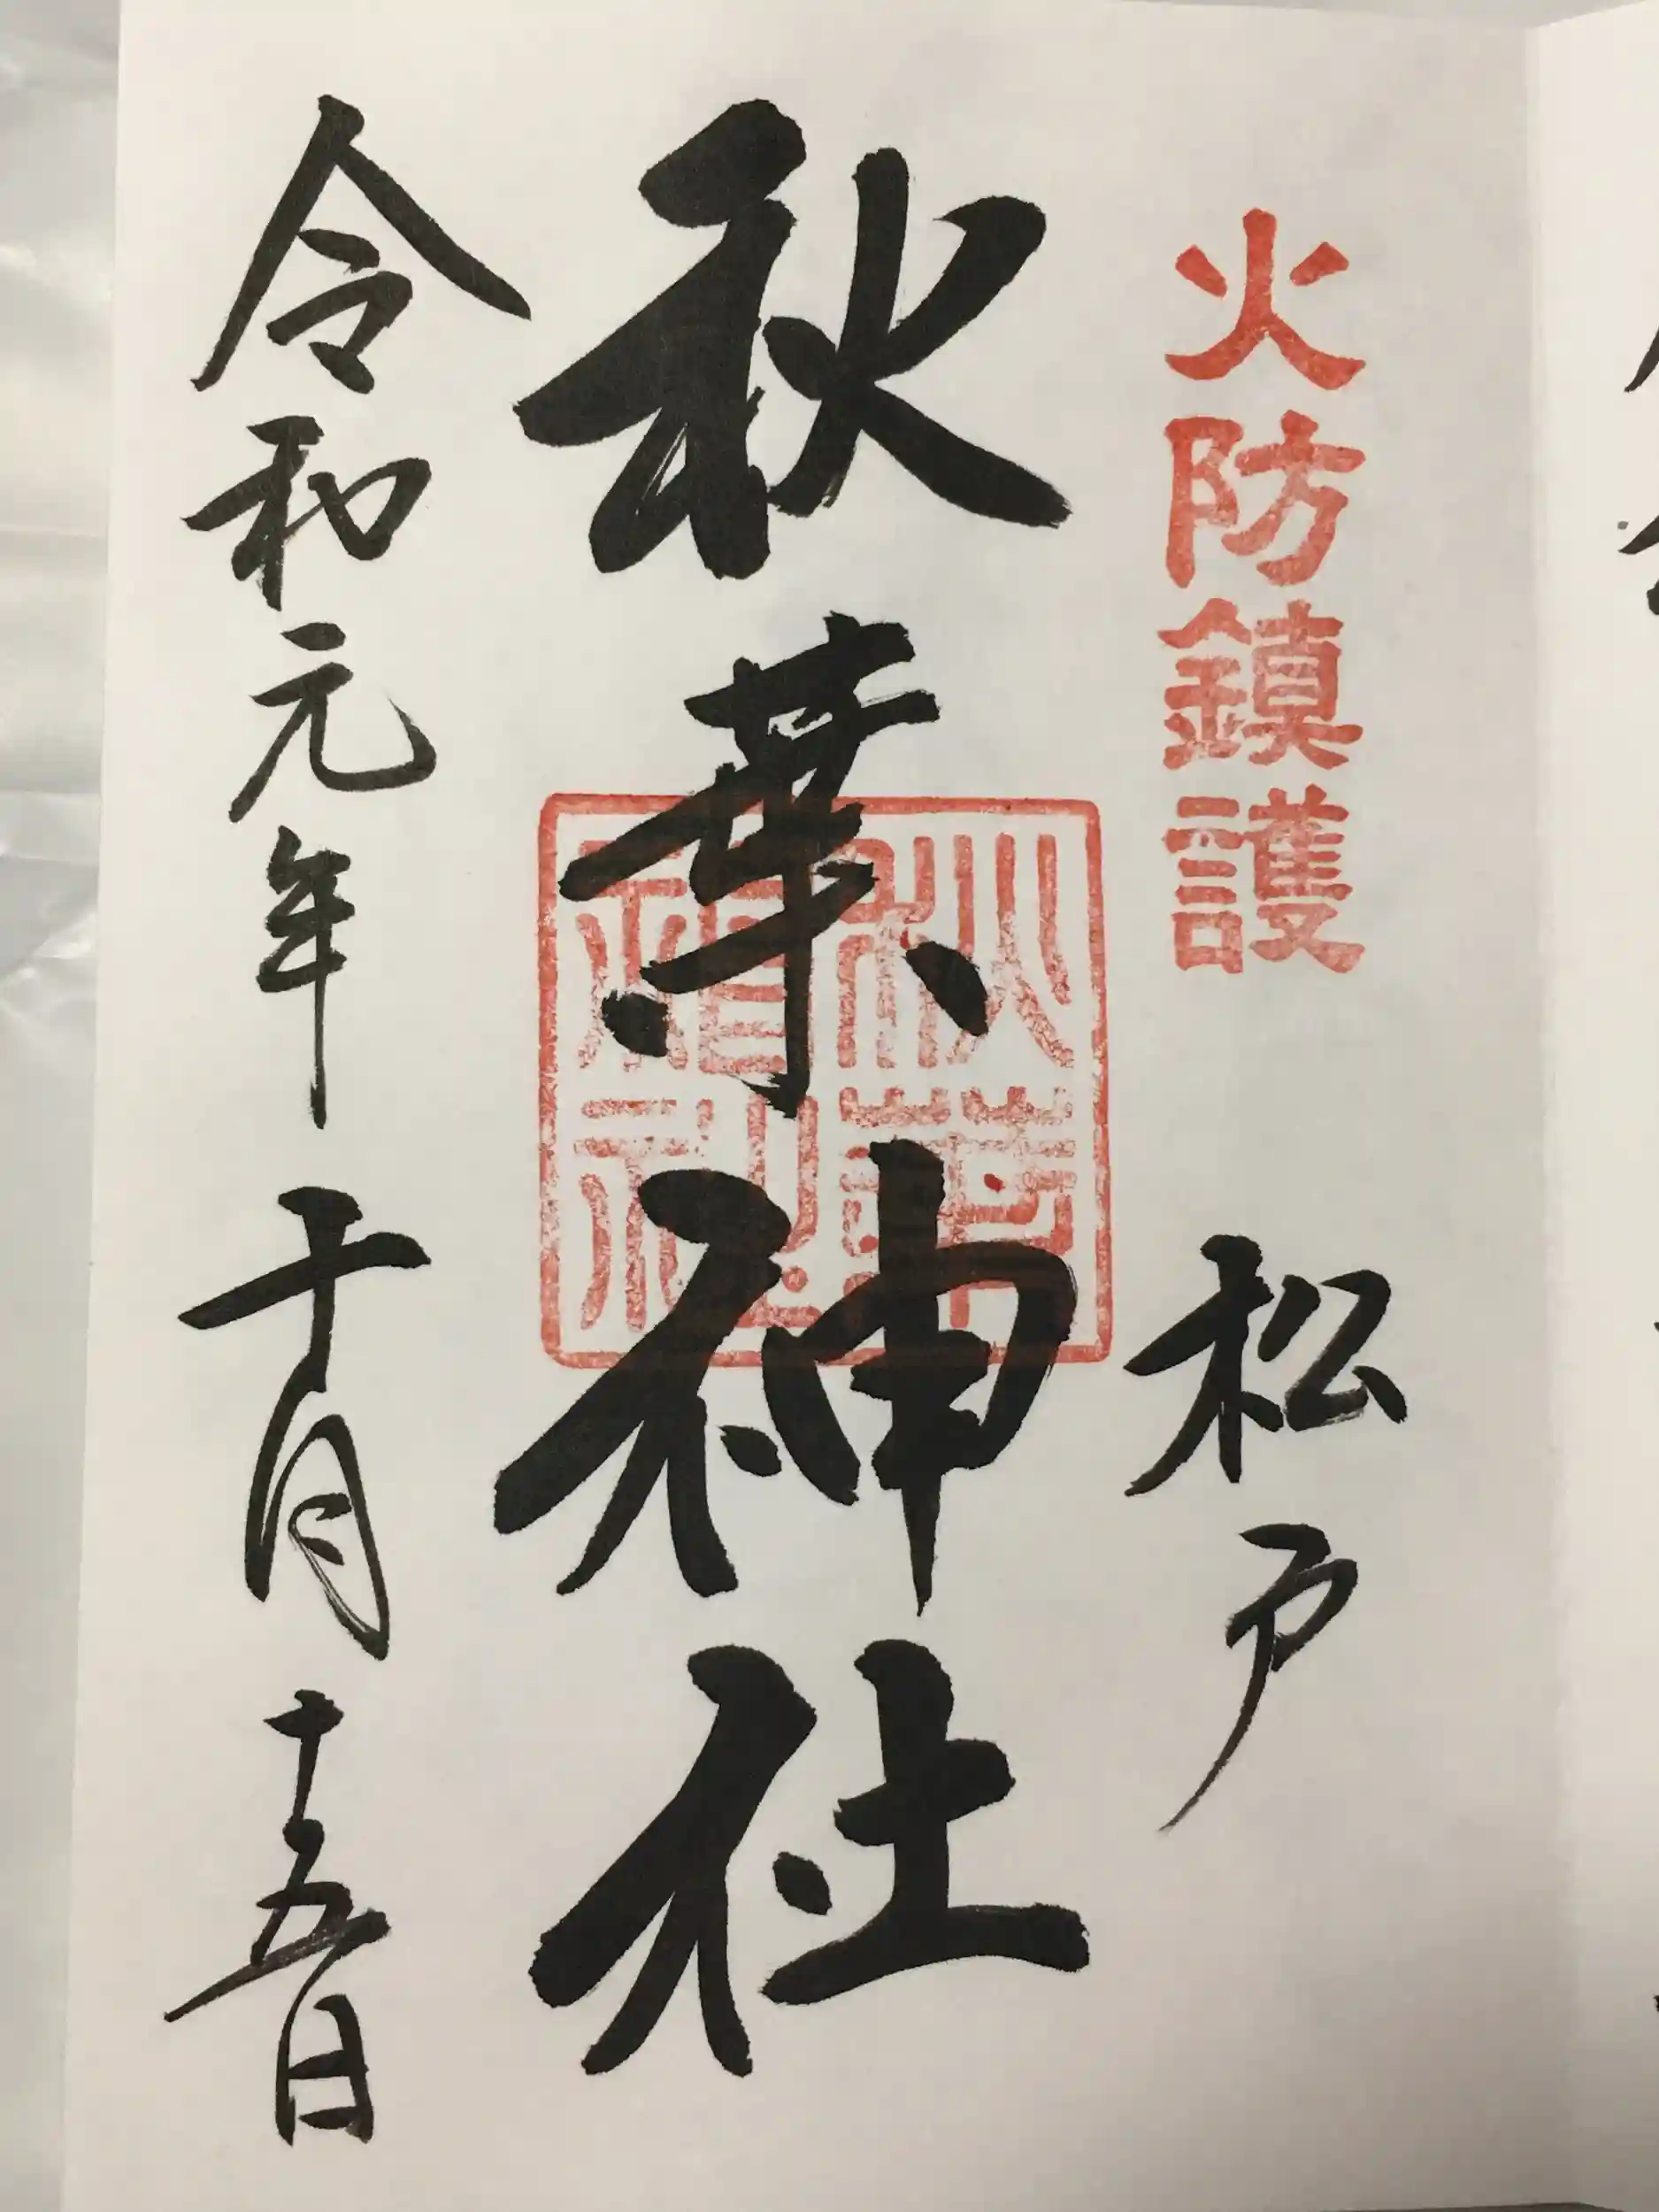 火防鎮護
松戸
秋葉神社
秋葉神社
令和元年 十月 十五日